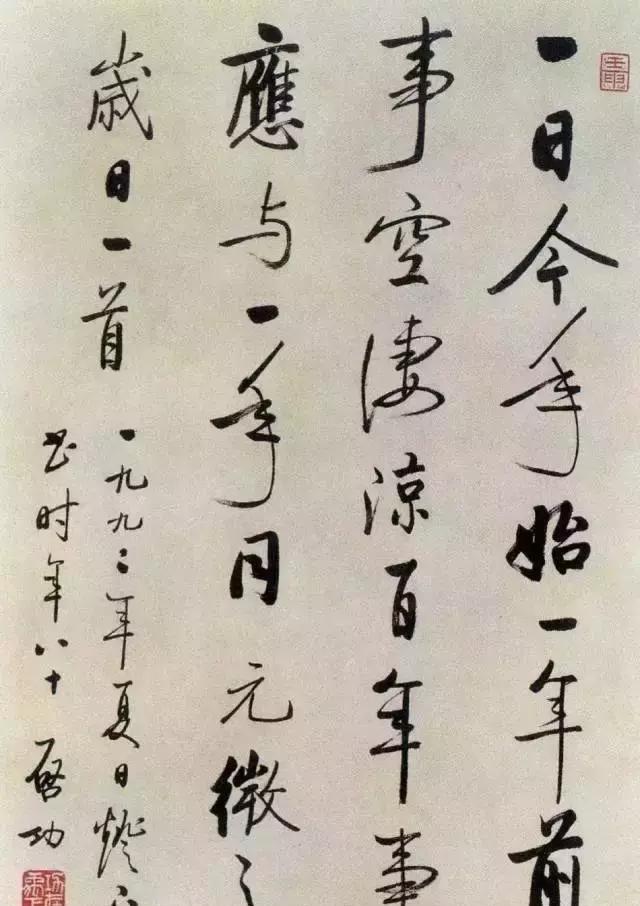 一日今年始一年前
事空凄涼百年事
應与一年同元微之
歲日一首
一九九二年夏日燈下
书时年八十
啓功